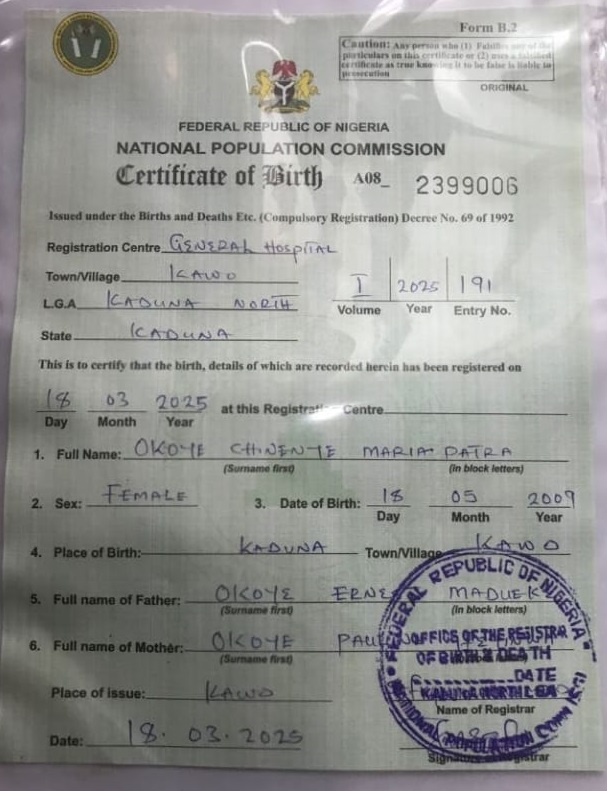 Form B.2
Caution: Any person who (1) Falsifies any of the
particulars on this certificate or (2) uses a falsified
certificate as true knowing it to be false is liable to
prosecution
ORIGINAL
FEDERAL REPUBLIC OF NIGERIA
NATIONAL POPULATION COMMISSION
Certificate of Birth A08_ 2399006
Issued under the Births and Deaths Etc. (Compulsory Registration) Decree No. 69 of 1992
Registration Centre GENERAL HOSPITAL
Town/Village KAWO
L.G.A KADUNA NORTH
I 2025 191
Volume Year Entry No.
State KADUNA
This is to certify that the birth, details of which are recorded herein has been registered on
18 03 2025 at this Registration Centre
Day Month Year
1. Full Name: OKOYE CHINENYE MARIA PATRA
(Surname first) (In block letters)
2. Sex: FEMALE 3. Date of Birth: 18 05 2009
Day Month Year
4. Place of Birth: KADUNA Town/Village KAWO
5. Full name of Father: OKOYE MADUEK
(Surname first) (In block letters)
6. Full name of Mother: OKOYE
(Surname first)
Place of issue: KAWO
Name of Registrar
Date: 18. 03. 2025
Signature of Registrar
FEDERAL REPUBLIC OF NIGERIA
OFFICE OF THE REGISTRAR
OF BIRTH & DEATH
DATE
KADUNA NORTH LGA
NATIONAL POPULATION COMM